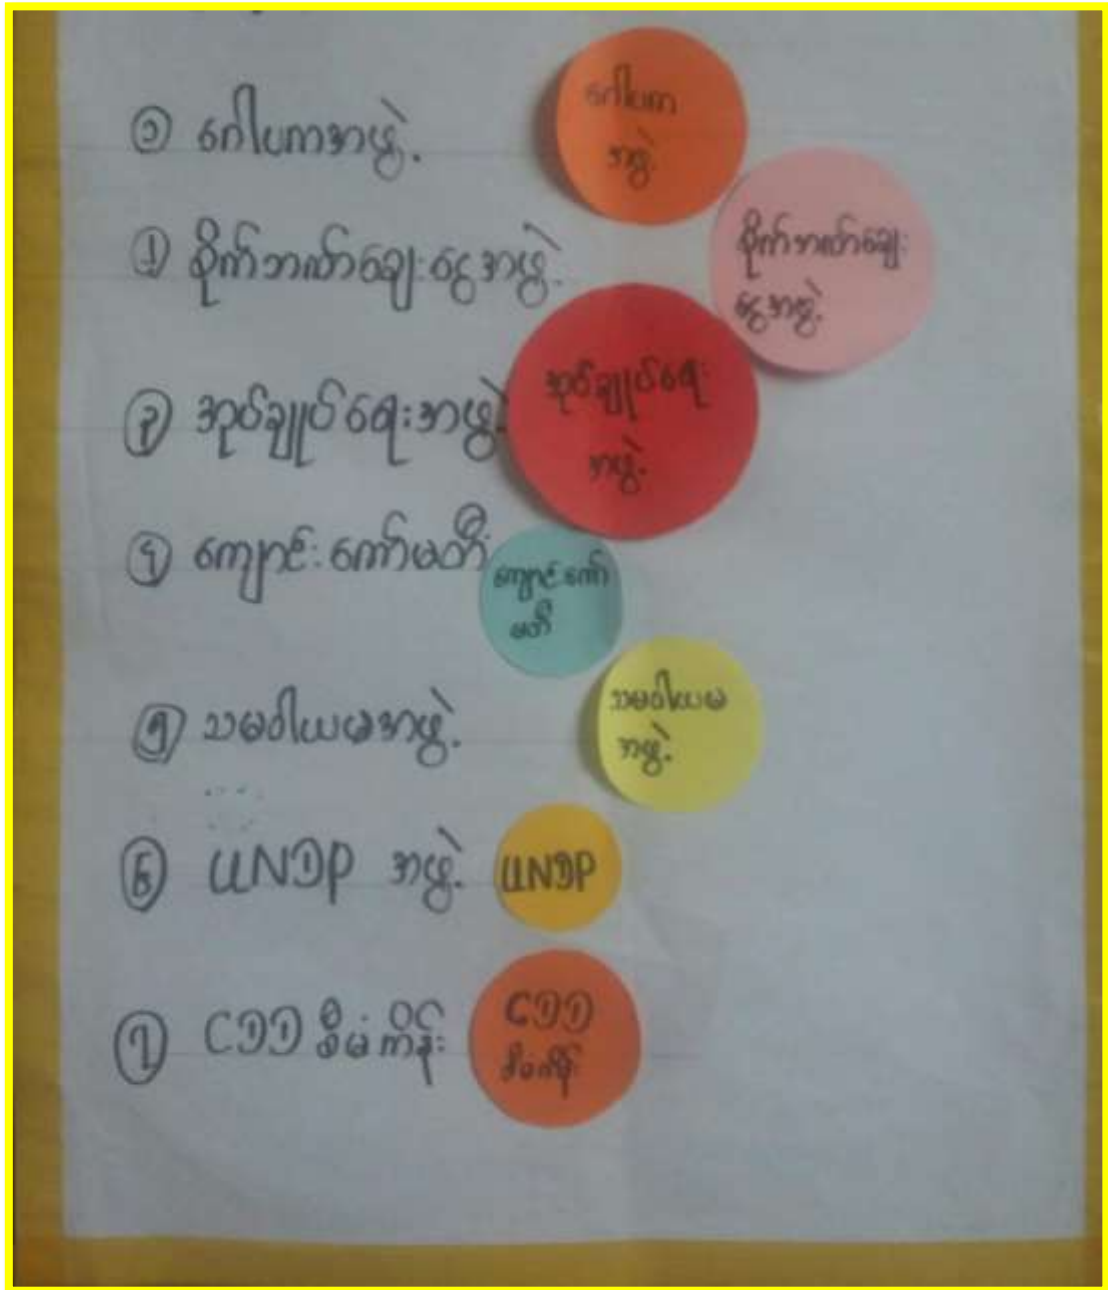 ၁ ဂေါပကအဖွဲ့.
ဂေါပက
အဖွဲ့.
၂ စိုက်ဘဏ်ချေးငွေအဖွဲ့.
စိုက်ဘဏ်ချေး
ငွေအဖွဲ့.
၃ အုပ်ချုပ်ရေးအဖွဲ့
အုပ်ချုပ်ရေး
အဖွဲ့.
၄ ကျောင်းကော်မတီ
ကျောင်းကော်
မတီ
၅ သမဝါယမအဖွဲ့.
သမဝါယမ
အဖွဲ့.
၆ UNDP အဖွဲ့.
UNDP
၇ CDD စီမံကိန်း
CDD
စီမံကိန်း